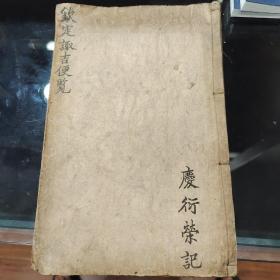 欽定諏吉便覽
慶衍榮記